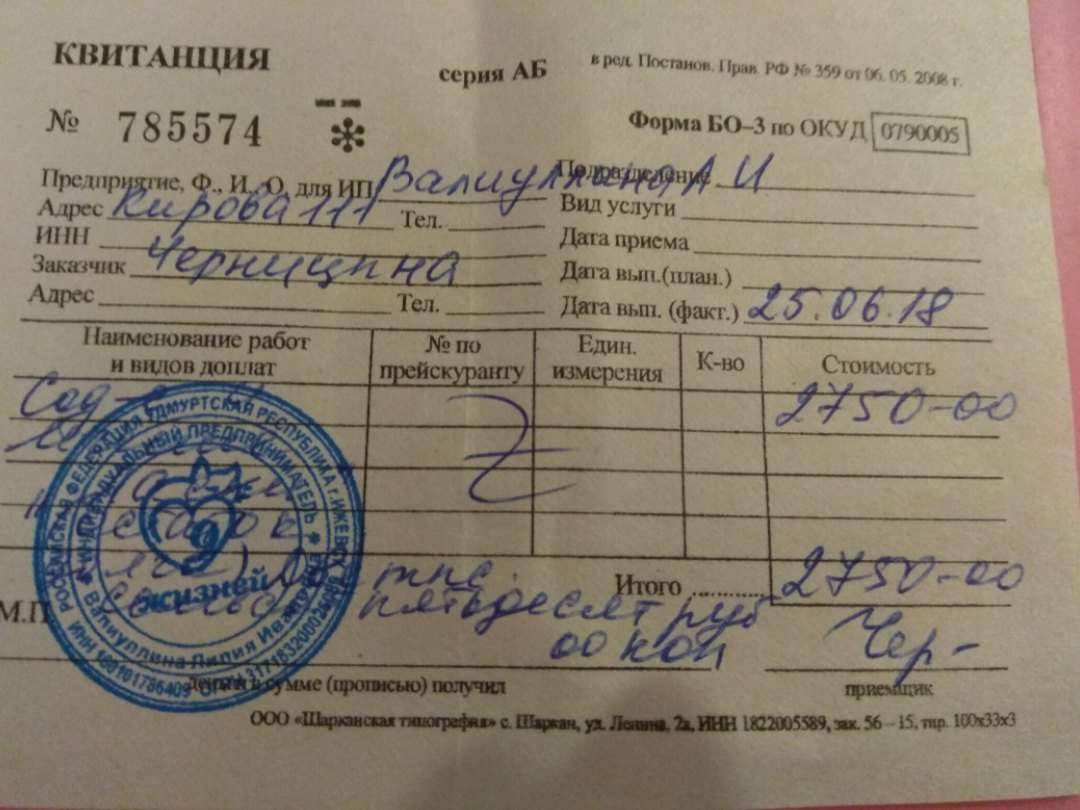 КВИТАНЦИЯ
серия АБ
в ред. Постанов. Прав. РФ № 359 от 06. 05. 2008 г.
№ 785574
Форма БО–3 по ОКУД 0790005
Предприятие, Ф., И., О. для ИП Валиуллина Л И
Подразделение
Адрес Кирова 111 Тел.
Вид услуги
ИНН
Дата приема
Заказчик Черницина
Дата вып.(план.)
Адрес Тел.
Дата вып. (факт.) 25.06.18
Наименование работ и видов доплат
№ по прейскуранту
Един. измерения
К-во
Стоимость
2750-00
Итого 2750-00
М.П.
пятьдесят руб
00 коп
Чер-
деньги в сумме (прописью) получил
приемщик
РОССИЙСКАЯ ФЕДЕРАЦИЯ УДМУРТСКАЯ РЕСПУБЛИКА г. ИЖЕВСК
ИНДИВИДУАЛЬНЫЙ ПРЕДПРИНИМАТЕЛЬ
Валиуллина Лилия
9 жизней
ООО «Шарканская типография» с. Шаркан, ул. Ленина, 2а, ИНН 1822005589, зак. 56 – 15, тир. 100х33х3